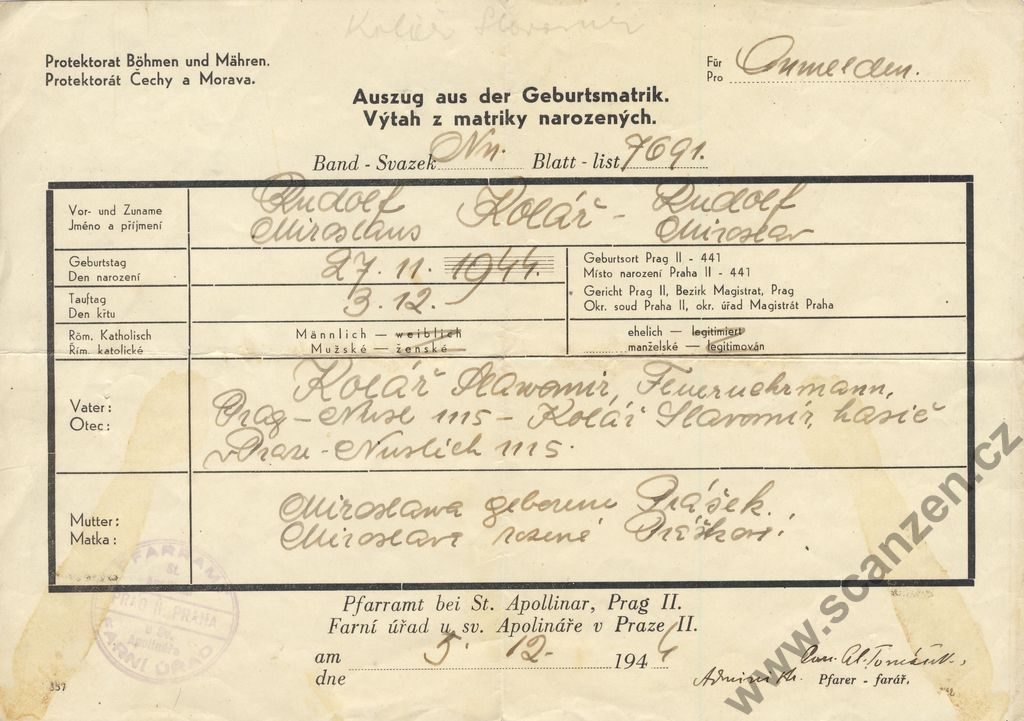 Kolář Slavomír
Protektorat Böhmen und Mähren.
Protektorát Čechy a Morava.
Für
Pro
Anmelden.
Auszug aus der Geburtsmatrik.
Výtah z matriky narozených.
Band - Svazek Nn. Blatt - list 7691.
Vor- und Zuname
Jméno a příjmení
Rudolf Kolář - Rudolf
Miroslaus Miroslav
Geburtstag
Den narození
27. 11. 1944.
Geburtsort Prag II - 441
Místo narození Praha II - 441
Tauftag
Den křtu
3. 12.
Gericht Prag II, Bezirk Magistrat, Prag
Okr. soud Praha II, okr. úřad Magistrát Praha
Röm. Katholisch
Řím. katolické
Männlich — weiblich
Mužské — ženské
ehelich — legitimiert
manželské — legitimován
Vater:
Otec:
Kolář Slawomir, Feuerwehrmann,
Prag - Nusle 1115 - Kolář Slavomír, hasič
v Praze - Nuslích 1115.
Mutter:
Matka:
Miroslawa geborene Prášek.
Miroslava rozená Prášková.
PFARRAMT
St.
PRAG II. PRAHA
u sv.
Apolináře
FARNÍ ÚŘAD
Pfarramt bei St. Apollinar, Prag II.
Farní úřad u sv. Apolináře v Praze II.
am
dne
5. 12. 1944
Pfarer - farář.
357
www.scanzen.cz